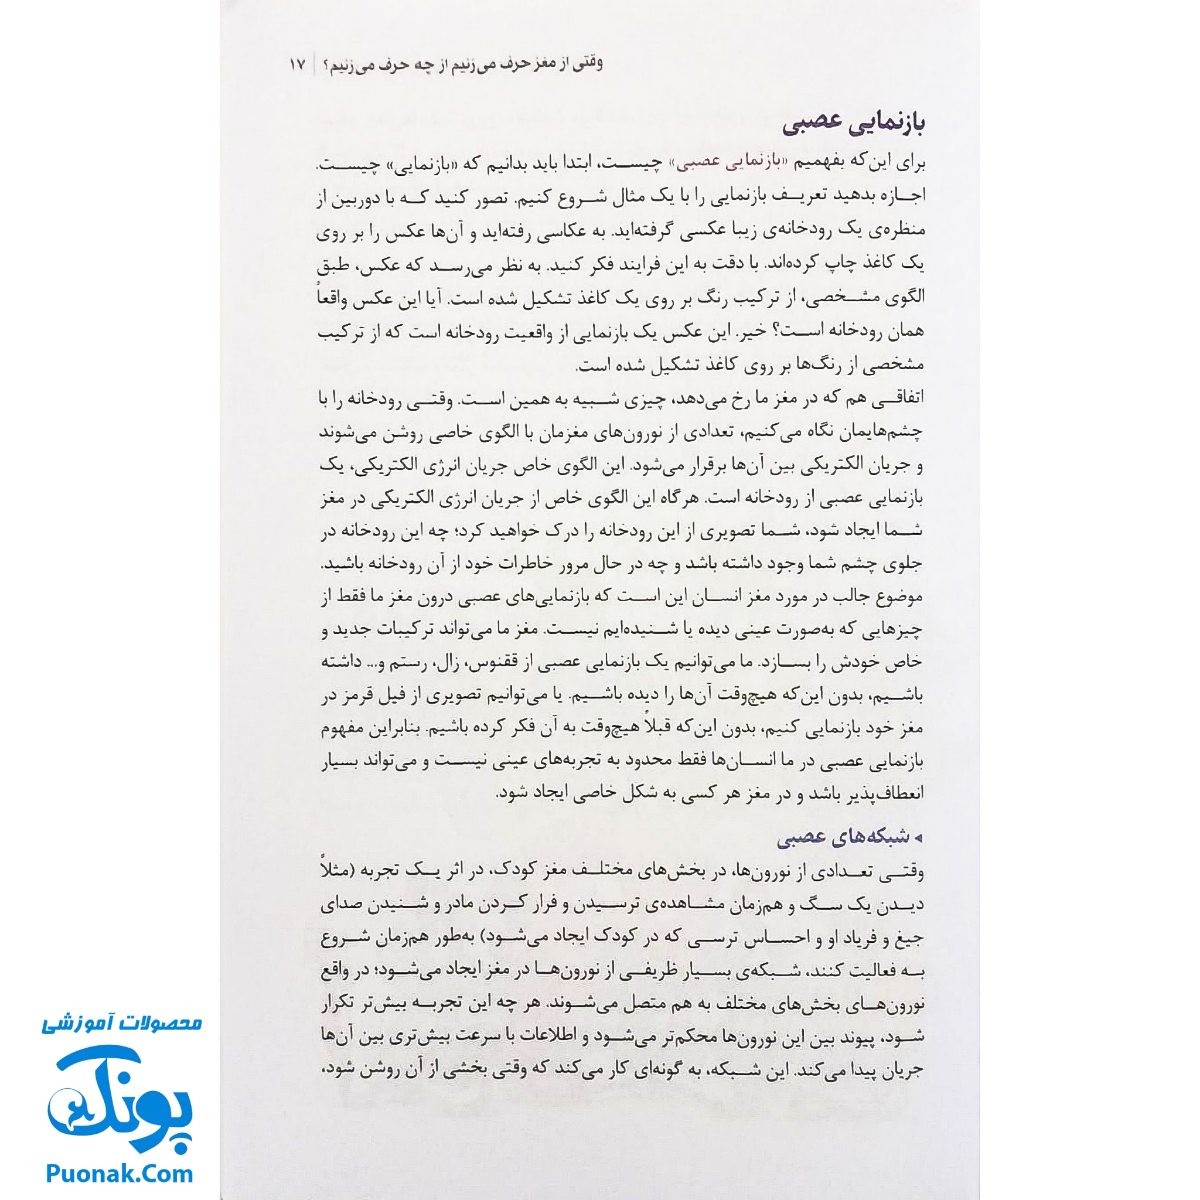 وقتی از مغز حرف می‌زنیم از چه حرف می‌زنیم؟ | ۱۷
بازنمایی عصبی
برای این‌که بفهمیم «بازنمایی عصبی» چیست، ابتدا باید بدانیم که «بازنمایی» چیست.
اجازه بدهید تعریف بازنمایی را با یک مثال شروع کنیم. تصور کنید که با دوربین از
منظره‌ی یک رودخانه‌ی زیبا عکسی گرفته‌اید. به عکاسی رفته‌اید و آن‌ها عکس را بر روی
یک کاغذ چاپ کرده‌اند. با دقت به این فرایند فکر کنید. به نظر می‌رسد که عکس، طبق
الگوی مشخصی، از ترکیب رنگ بر روی یک کاغذ تشکیل شده است. آیا این عکس واقعاً
همان رودخانه است؟ خیر. این عکس یک بازنمایی از واقعیت رودخانه است که از ترکیب
مشخصی از رنگ‌ها بر روی کاغذ تشکیل شده است.
اتفاقی هم که در مغز ما رخ می‌دهد، چیزی شبیه به همین است. وقتی رودخانه را با
چشم‌هایمان نگاه می‌کنیم، تعدادی از نورون‌های مغزمان با الگوی خاصی روشن می‌شوند
و جریان الکتریکی بین آن‌ها برقرار می‌شود. این الگوی خاص جریان انرژی الکتریکی، یک
بازنمایی عصبی از رودخانه است. هرگاه این الگوی خاص از جریان انرژی الکتریکی در مغز
شما ایجاد شود، شما تصویری از این رودخانه را درک خواهید کرد؛ چه این رودخانه در
جلوی چشم شما وجود داشته باشد و چه در حال مرور خاطرات خود از آن رودخانه باشید.
موضوع جالب در مورد مغز انسان این است که بازنمایی‌های عصبی درون مغز ما فقط از
چیزهایی که به‌صورت عینی دیده یا شنیده‌ایم نیست. مغز ما می‌تواند ترکیبات جدید و
خاص خودش را بسازد. ما می‌توانیم یک بازنمایی عصبی از ققنوس، زال، رستم و... داشته
باشیم، بدون این‌که هیچ‌وقت آن‌ها را دیده باشیم. یا می‌توانیم تصویری از فیل قرمز در
مغز خود بازنمایی کنیم، بدون این‌که قبلاً هیچ‌وقت به آن فکر کرده باشیم. بنابراین مفهوم
بازنمایی عصبی در ما انسان‌ها فقط محدود به تجربه‌های عینی نیست و می‌تواند بسیار
انعطاف‌پذیر باشد و در مغز هر کسی به شکل خاصی ایجاد شود.
◂ شبکه‌های عصبی
وقتی تعدادی از نورون‌ها، در بخش‌های مختلف مغز کودک، در اثر یک تجربه (مثلاً
دیدن یک سگ و هم‌زمان مشاهده‌ی ترسیدن و فرار کردن مادر و شنیدن صدای
جیغ و فریاد او و احساس ترسی که در کودک ایجاد می‌شود) به‌طور هم‌زمان شروع
به فعالیت کنند، شبکه‌ی بسیار ظریفی از نورون‌ها در مغز ایجاد می‌شود؛ در واقع
نورون‌های بخش‌های مختلف به هم متصل می‌شوند. هر چه این تجربه بیش‌تر تکرار
شود، پیوند بین این نورون‌ها محکم‌تر می‌شود و اطلاعات با سرعت بیش‌تری بین آن‌ها
جریان پیدا می‌کند. این شبکه، به گونه‌ای کار می‌کند که وقتی بخشی از آن روشن شود،
محصولات آموزشی
پونک
Puonak.Com